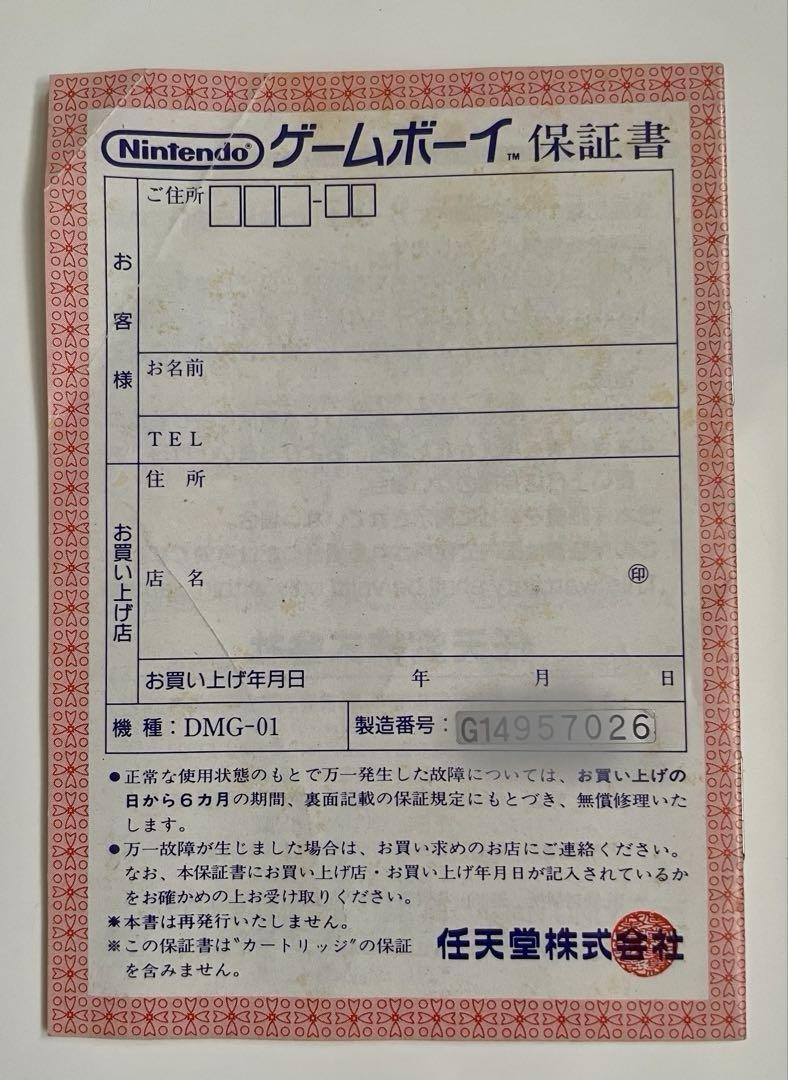 Nintendo® ゲームボーイ™ 保証書
お客様
ご住所 □□□-□□
お名前
TEL
お買い上げ店
住 所
店 名 ㊞
お買い上げ年月日 年 月 日
機 種：DMG-01 製造番号：G14957026
●正常な使用状態のもとで万一発生した故障については、お買い上げの
日から6カ月の期間、裏面記載の保証規定にもとづき、無償修理いた
します。
●万一故障が生じました場合は、お買い求めのお店にご連絡ください。
なお、本保証書にお買い上げ店・お買い上げ年月日が記入されているか
をお確かめの上お受け取りください。
※本書は再発行いたしません。
※この保証書は〝カートリッジ〟の保証
を含みません。
任天堂株式会社